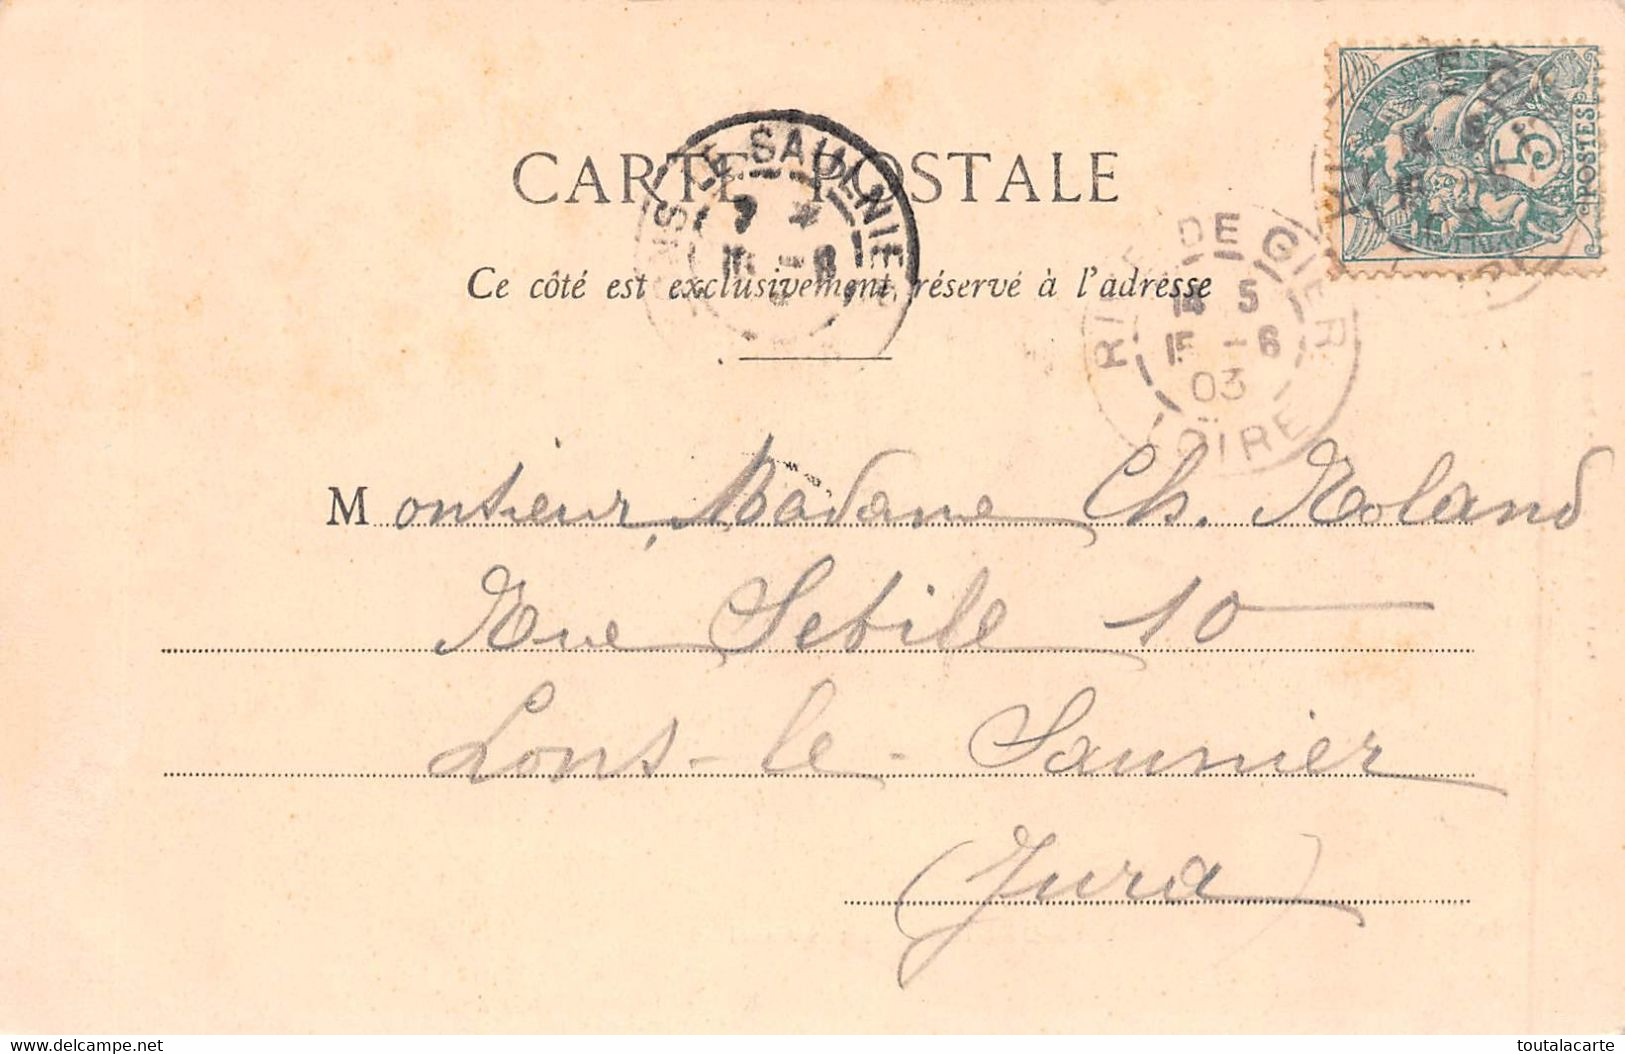 CARTE POSTALE
Ce côté est exclusivement réservé à l'adresse
POSTES
5
RIVE DE GIER
18 5
15 -6
03
LOIRE
LONS-LE-SAUNIER
Monsieur, Madame Ch. Roland
Rue Sebile 10
Lons-le-Saunier
(Jura)
www.delcampe.net
toutalacarte